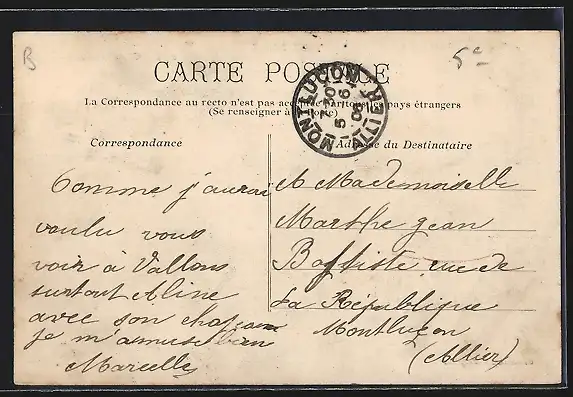 B
5c
CARTE POSTALE
La Correspondance au recto n'est pas acceptée par tous les pays étrangers
(Se renseigner à la Poste)
MONTLUÇON
ALLIER
Correspondance
Adresse du Destinataire
Comme j'aurai
voulu vous
voir à Vallons
surtout Aline
avec son chapeau
je m'amuse bien
Marcelle
A Mademoiselle
Marthe Jean
Baptiste rue de
La République
Montluçon
(Allier)